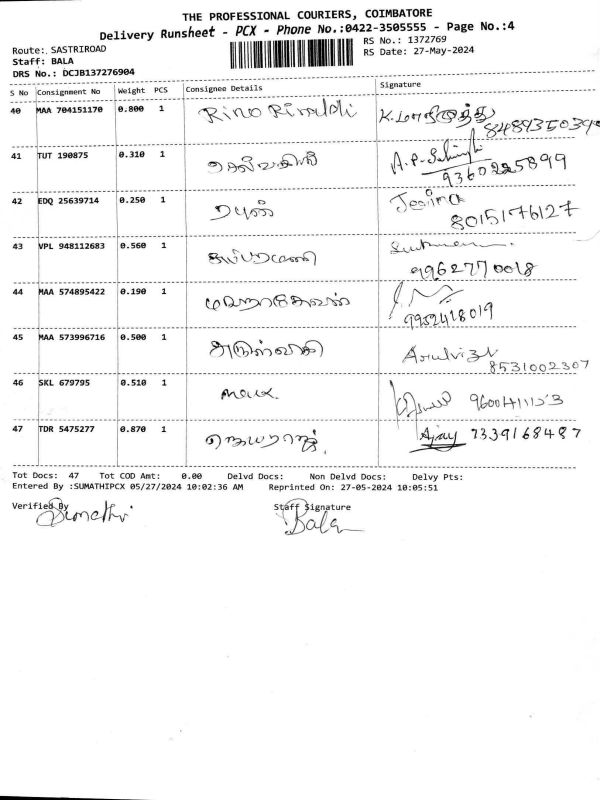 THE PROFESSIONAL COURIERS, COIMBATORE
Delivery Runsheet - PCX - Phone No.:0422-3505555 - Page No.:4
Route: SASTRIROAD
RS No.: 1372769
Staff: BALA
RS Date: 27-May-2024
DRS No.: DCJB137276904
S No Consignment No Weight PCS Consignee Details Signature
40 MAA 704151170 0.800 1
41 TUT 190875 0.310 1
9360225899
42 EDQ 25639714 0.250 1
8015176127
43 VPL 948112683 0.560 1 சுப்பிரமணி
9962770018
44 MAA 574895422 0.190 1
9952418019
45 MAA 573996716 0.500 1 அருள்வாகி
8531002307
46 SKL 679795 0.510 1
47 TDR 5475277 0.870 1 ஜெயராஜ் Ajay 7339168487
Tot Docs: 47 Tot COD Amt: 0.00 Delvd Docs: Non Delvd Docs: Delvy Pts:
Entered By :SUMATHIPCX 05/27/2024 10:02:36 AM Reprinted On: 27-05-2024 10:05:51
Verified By Staff Signature
Sumathi Bala